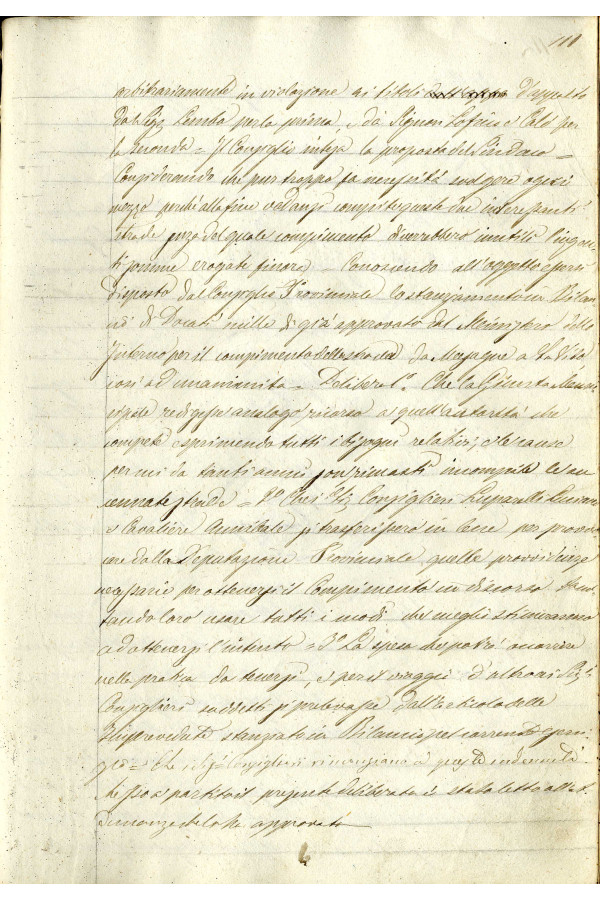 111
arbitrariamente in violazione ai titoli d'appalto
dal Sig. Lemba per la prima, e da Signori Lofeiso e Calò per
la seconda = Il Consiglio intesa la proposta del Sindaco =
Considerando che pur troppo fa necessità svolgere ogni
mezzo perché alla fine compite queste due interessanti
strade senza del quale compimento diverrebbero inutili l'ingen-
ti somme erogate finora = Conoscendo all'oggetto essersi
disposto dal Consiglio Provinciale lo stanziamento in Bilan-
di Ducati mille di già approvato dal Ministero dello
Interno per il compimento della strada da Mesagne a S. Vito
così ad unanimità = Delibera 1°. Che la Giunta Muni-
cipale redigesse analogo ricorso a quell'autorità che
compete esprimendo tutti i bisogni relativi, e le cause
per cui da tanti anni son rimasti incompite le ac-
cennate strade = 2° Che i Sig. Consiglieri Luparelli Luciano
e Cavaliere Annibale si trasferissero in Lecce per provo-
care dalla Deputazione Provinciale quelle provvidenze
necessarie per ottenersi il Compimento in discorso
loro usare tutti i modi che meglio stimeranno
ad ottenersi l'intento = 3° La spesa che potrà occorrere
nella pratica da tenersi, e per il viaggio d'altronde Sig.
Consiglieri suddetti si prelevasse dall'articolo delle
Impreviste stanziato in Bilancio pel corrente eserci-
zio = Che i Sig. Consiglieri rinunziano a queste indennità
il presente deliberato è stato letto all'a-
dunanza che lo ha approvato